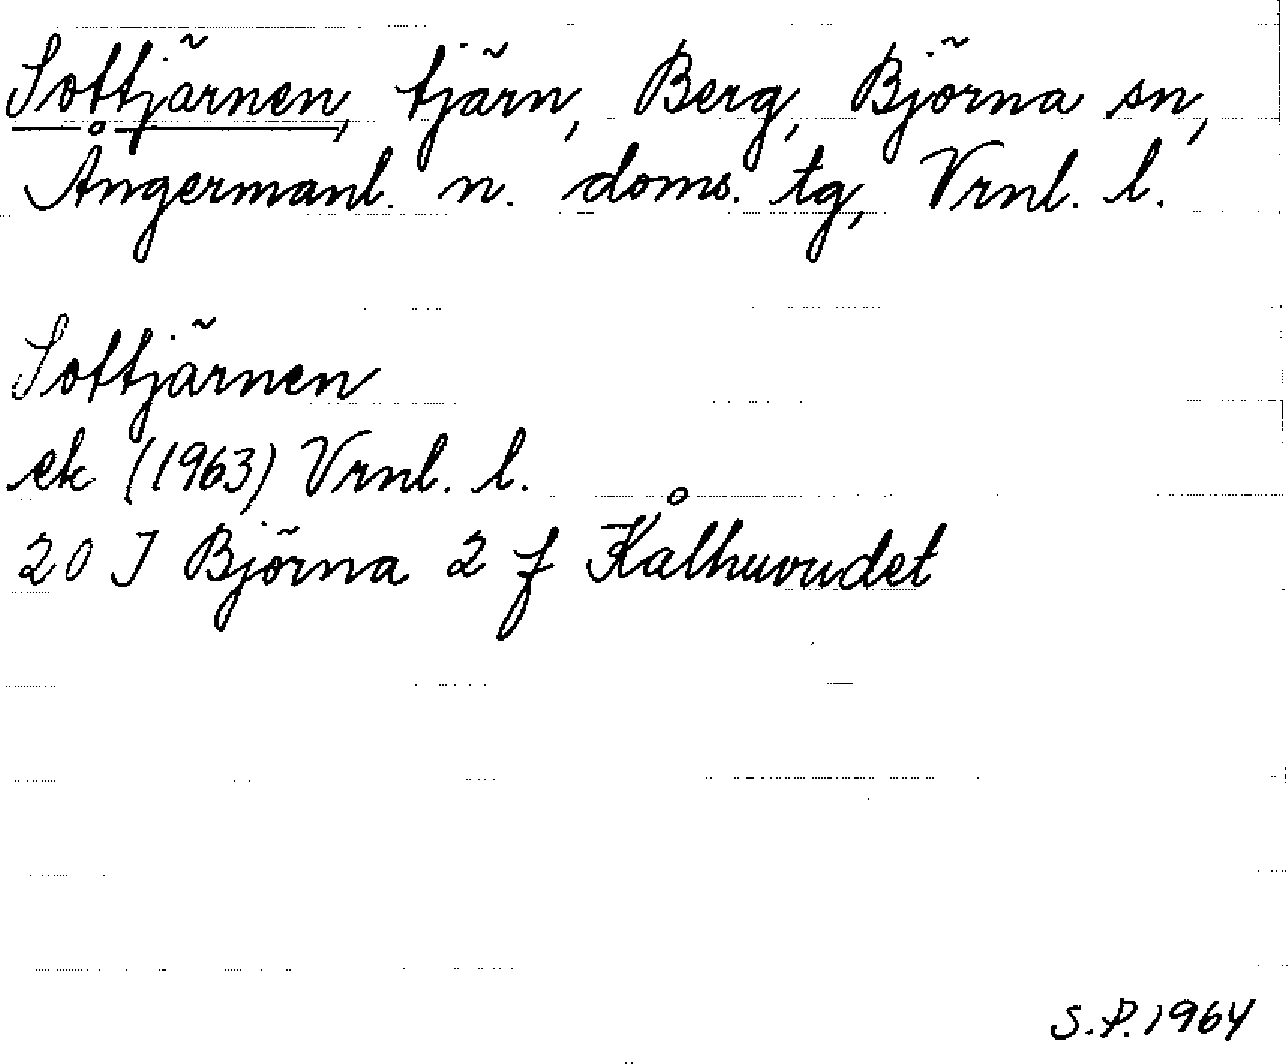 Sottjärnen, tjärn, Berg, Björna sn,
Ångermanl. n. doms. tg, Vrnl. l.
Sottjärnen
ek (1963) Vrnl. l.
20 J Björna 2 f Kålhuvudet
S.P. 1964